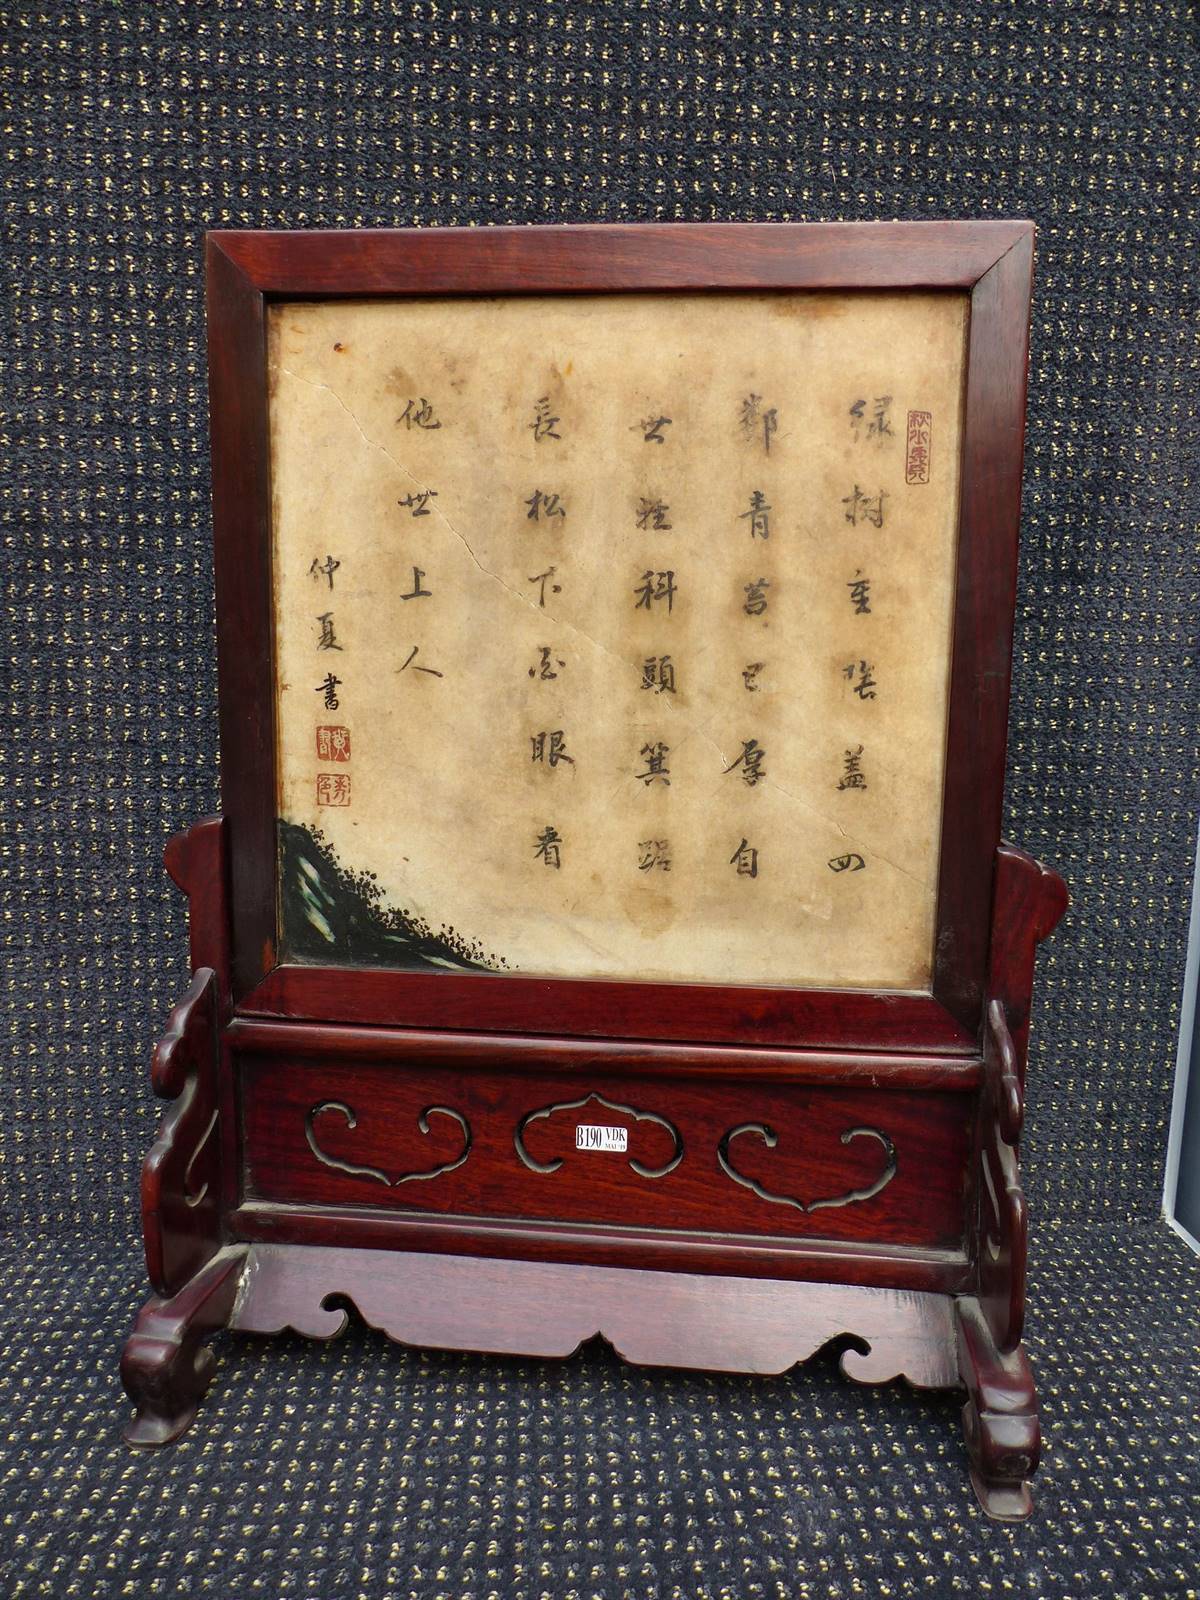 綠樹重陰蓋四
鄰青苔日厚自
無塵科頭箕踞
長松下白眼看
他世上人
仲夏書
B190 VDK
MAI '19